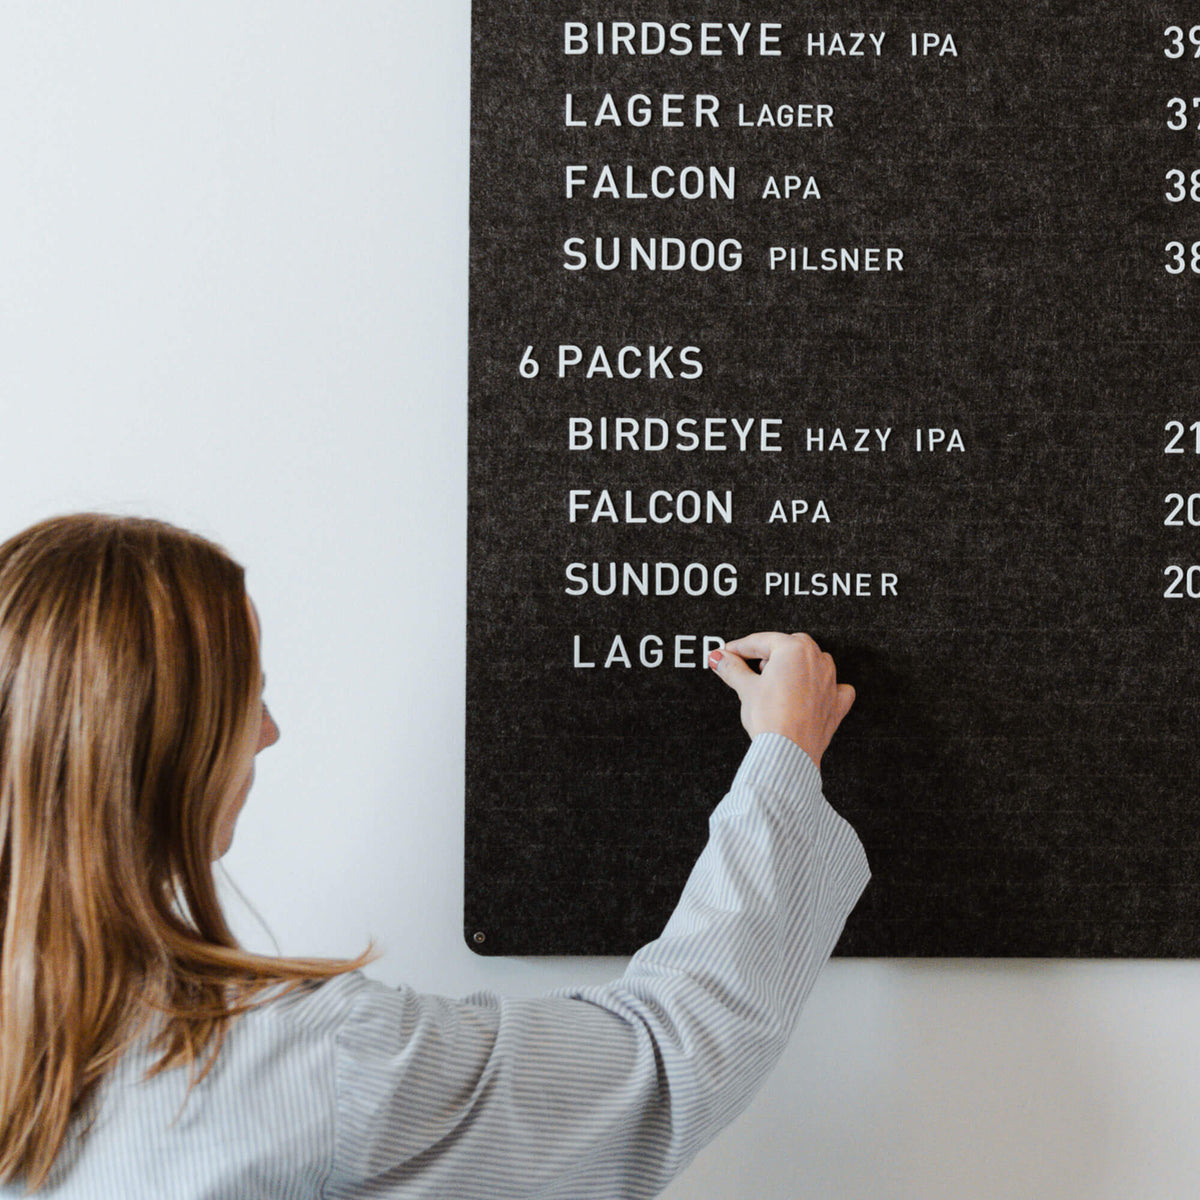 BIRDSEYE HAZY IPA 39
LAGER LAGER 37
FALCON APA 38
SUNDOG PILSNER 38
6 PACKS
BIRDSEYE HAZY IPA 21
FALCON APA 20
SUNDOG PILSNER 20
LAGER